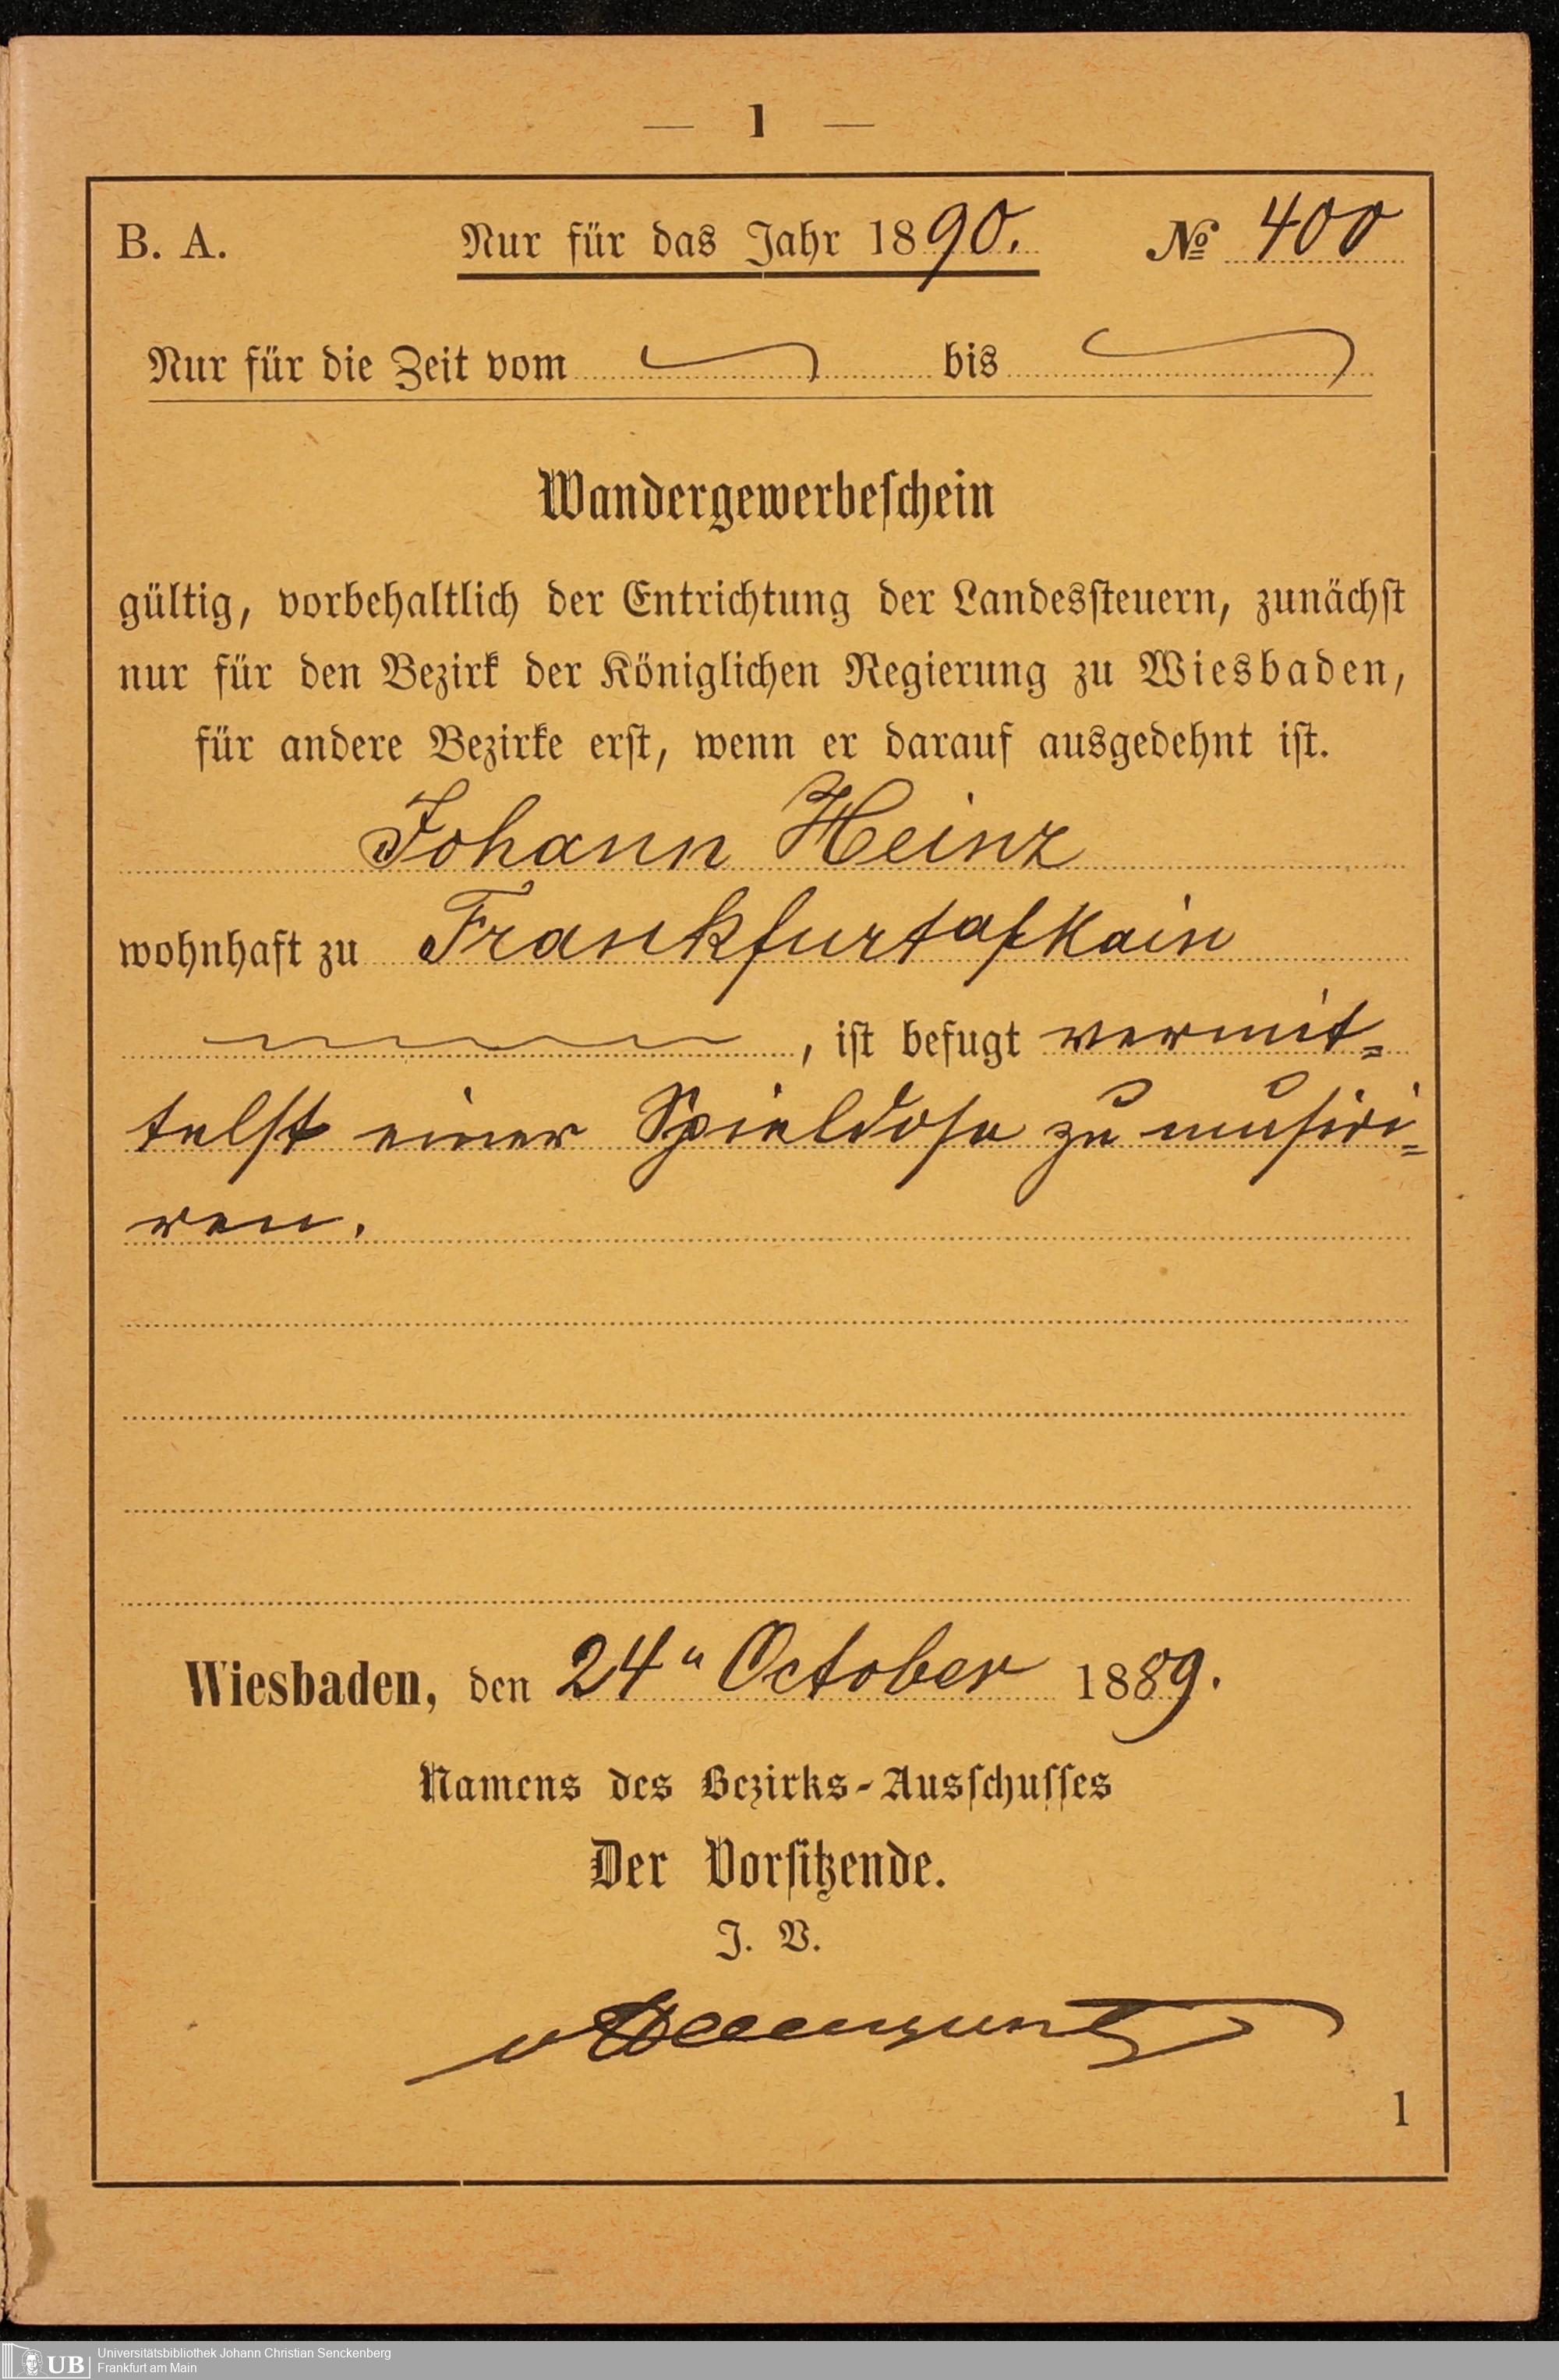 — 1 —
B. A. Nur für das Jahr 1890. № 400
Nur für die Zeit vom bis
Wandergewerbeschein
gültig, vorbehaltlich der Entrichtung der Landessteuern, zunächst
nur für den Bezirk der Königlichen Regierung zu Wiesbaden,
für andere Bezirke erst, wenn er darauf ausgedehnt ist.
Johann Heinz
wohnhaft zu Frankfurt a/Main
, ist befugt vermit=
telst einer Spieldose zu musici=
ren.
Wiesbaden, den 24" October 1889.
Namens des Bezirks-Ausschusses
Der Vorsitzende.
J. V.
1
UB Universitätsbibliothek Johann Christian Senckenberg
Frankfurt am Main